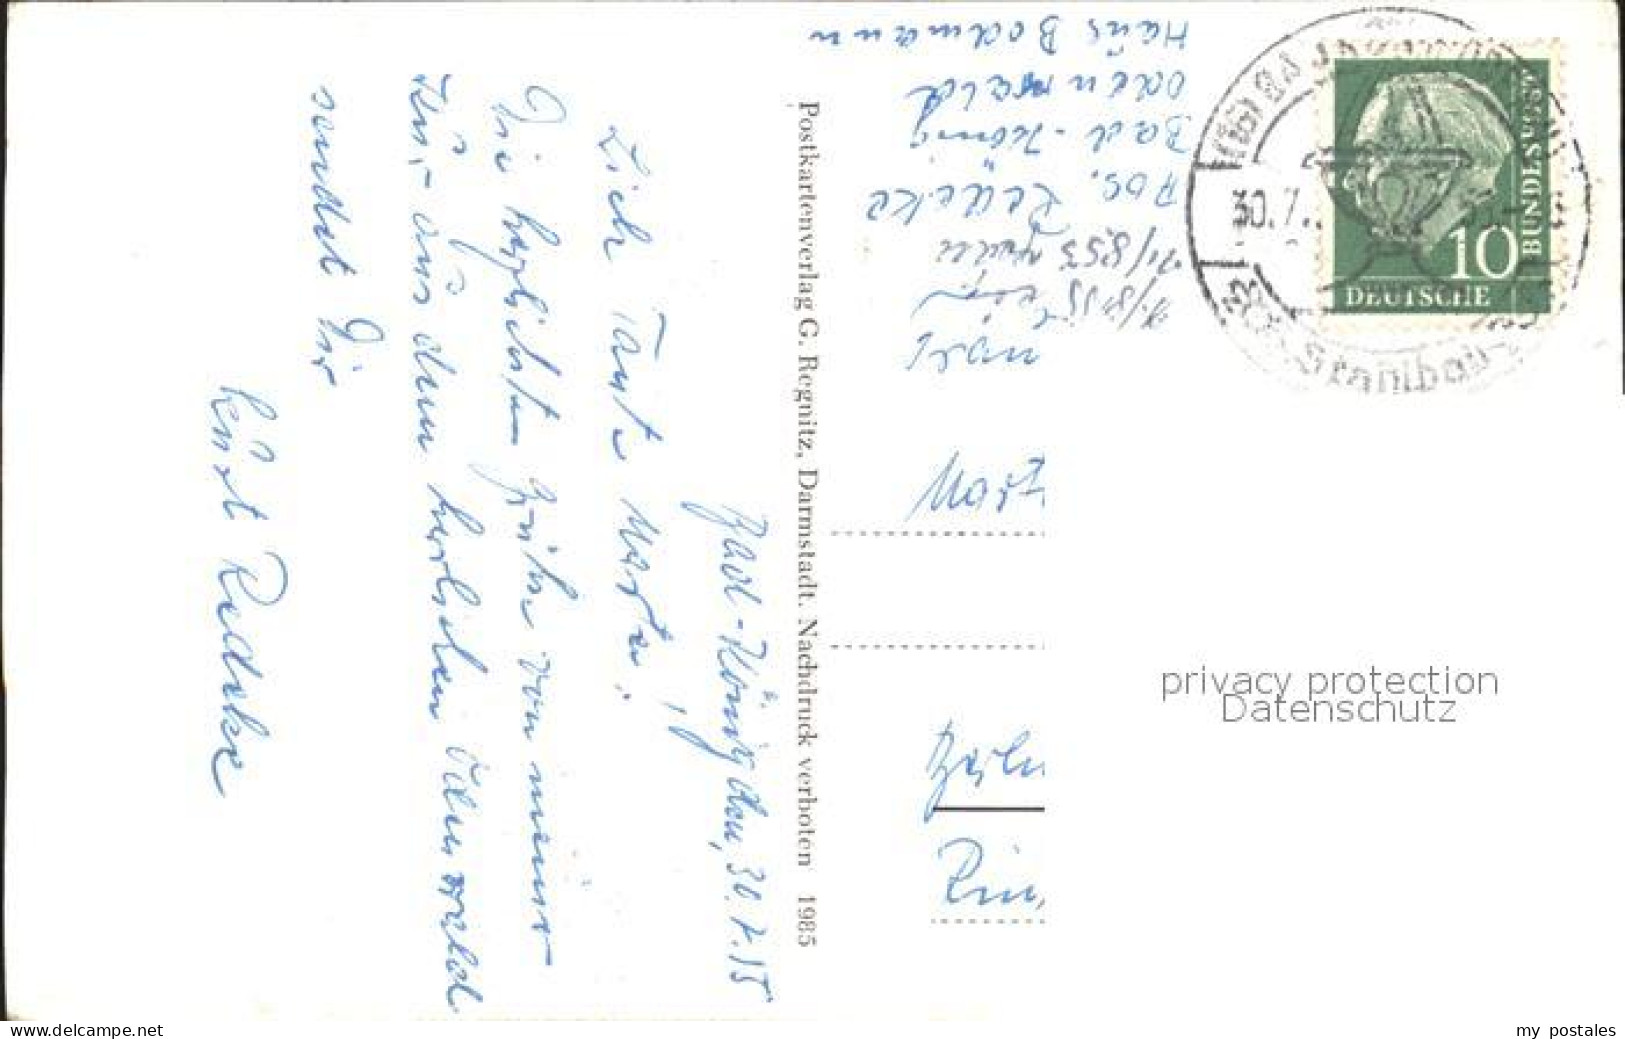 Bad-König, den, 30.7.55
Liebe Tante Marta!
Die herzlichsten Grüße von meiner
Kur, aus dem herrlichen Odenwald
sendet Dir
Kurt Redeke
Postkartenverlag G. Regnitz, Darmstadt. Nachdruck verboten 1985
Abs. Redeke
Bad-König
Odenwald
Haus Bodmann
30.7.
Stahlbad
10
DEUTSCHE
BUNDESPOST
privacy protection
Datenschutz
www.delcampe.net
my postales